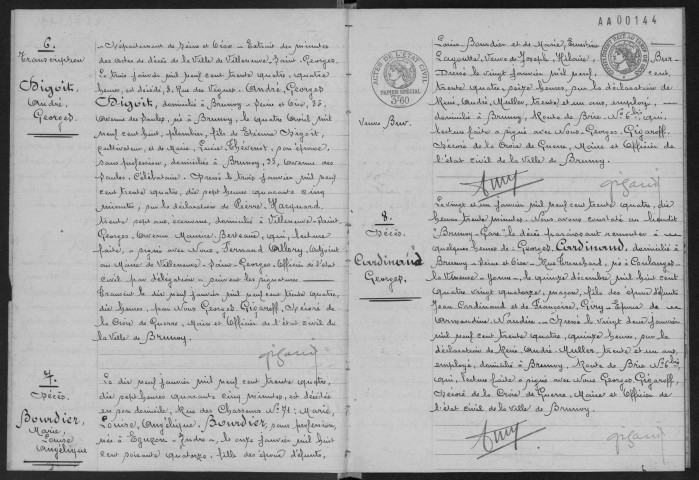 6.
Transcription
Digoit,
André,
Georges.
Département de Seine et Oise - Extrait des minutes
des Actes de décès de la Ville de Villeneuve Saint-Georges.
Le trois janvier mil neuf cent trente quatre, quatre
heures, est décédé, 8, Rue des Vignes, André, Georges
Digoit, domicilié à Brunoy - Seine et Oise, 35,
Avenue des Saules, né à Brunoy, le quatre Avril mil
neuf cent huit, plombier, fils de Etienne Digoit,
cultivateur, et de Marie, Lucie Thévenot, son épouse,
sans profession, domiciliés à Brunoy, 35, Avenue des
Saules. Célibataire. Dressé le trois janvier mil neuf
cent trente quatre, dix sept heures quarante cinq
minutes, sur la déclaration de Pierre Hacquard,
trente sept ans, économe, domicilié à Villeneuve-Saint-
Georges, Avenue Maurice Berteaux, qui, lecture
faite, a signé avec Nous, Fernand Allary, Adjoint
au Maire de Villeneuve-Saint-Georges, Officier de l'état
Civil par délégation. Suivent les signatures
Transcrit le dix neuf janvier mil neuf cent trente quatre,
dix heures, par Nous Georges Gigaroff, Décoré de
la Croix de Guerre, Maire et Officier de l'état civil de
la Ville de Brunoy.
7.
Décès.
Bourdier,
Marie,
Louise
Angélique
Le dix neuf janvier mil neuf cent trente quatre,
dix sept heures quarante cinq minutes, est décédée
en son domicile, Rue des Chasseurs No 71, Marie,
Louise, Angélique, Bourdier, sans profession,
née à Eguzon - Indre, le onze janvier mil huit
cent soixante quatorze, fille des époux défunts,
AA00144
ACTES DE L'ÉTAT CIVIL
PAPIER SPÉCIAL
3f60
Louis Bourdier et de Marie, Ernestine
Veuve de Joseph Hilaire,
Dressé le vingt janvier mil neuf cent
trente quatre, seize heures, sur la déclaration de
René, André, Muller, trente et un ans, employé,
domicilié à Brunoy, Route de Brie No 6 bis, qui,
lecture faite a signé avec Nous, Georges Gigaroff,
Décoré de la Croix de Guerre, Maire et Officier de
l'état civil de la Ville de Brunoy.
8.
Décès.
Cardinaud
Georges.
Le vingt et un janvier mil neuf cent trente quatre, dix
heures trente minutes. Nous avons constaté au lieudit
à Brunoy-Gare le décès paraissant remonter à
quelques heures de Georges, Cardinaud, domicilié à
Brunoy - Seine et Oise - Rue Tronchard, né à Coulanges
la Vineuse - Yonne, le quinze décembre mil huit cent
quatre vingt quatorze, maçon, fils des époux défunts
Jean Cardinaud et de Françoise, Giry - Epoux de
Armandine Naudin. Dressé le vingt deux janvier
mil neuf cent trente quatre, quinze heures, sur la
déclaration de René, André Muller, trente et un ans,
employé, domicilié à Brunoy, Route de Brie No 6 bis,
qui, lecture faite a signé avec Nous, Georges, Gigaroff,
Décoré de la Croix de Guerre, Maire et Officier de
l'état civil de la Ville de Brunoy.